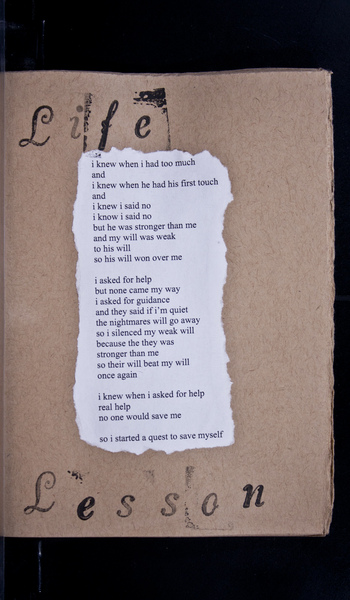 Life
i knew when i had too much
and
i knew when he had his first touch
and
i knew i said no
i know i said no
but he was stronger than me
and my will was weak
to his will
so his will won over me
i asked for help
but none came my way
i asked for guidance
and they said if i'm quiet
the nightmares will go away
so i silenced my weak will
because the they was
stronger than me
so their will beat my will
once again
i knew when i asked for help
real help
no one would save me
so i started a quest to save myself
Lesson